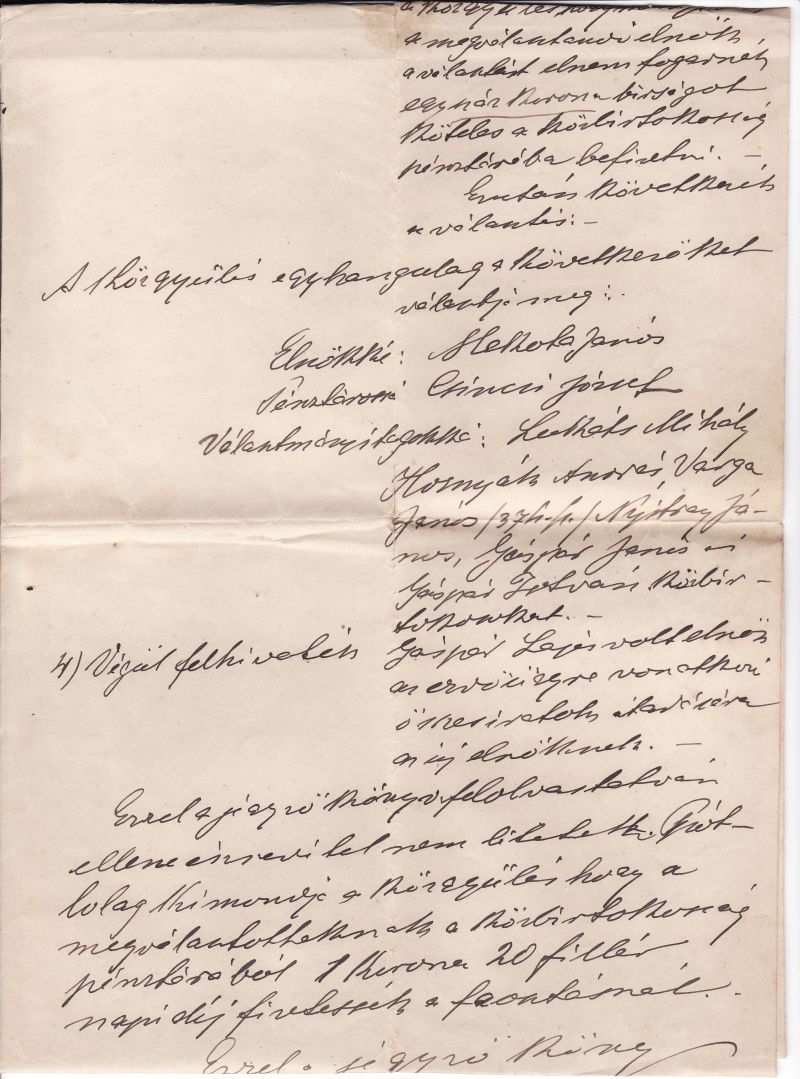 a megválasztandó elnök
a választást elnem fogadnák
egyszáz Korona birságot
Köteles a Közbirtokosság
pénztárába befizetni. –
Ezután Következék
a választás: –
A Közgyülés egyhangulag a Következőket
választja meg:
Elnökké: Mekota János
Pénztárossá Csincsi József
Választmányi tagokká: Lukáts Mihály
Hornyák András Varga
János /37h.sz./ Nyitray Já-
nos, Gáspár János és
Gáspár István Közbir-
tokosokat. –
4) Végül felhivaték Gáspár Lajos volt elnök
az erdőügyre vonatkozó
összes iratok átadására
az új elnöknek. –
Ezzel a jegyző Könyv felolvastatván
ellene észrevétel nem tétetett. Pót-
lolag Kimondja a Közgyülés hogy a
megválasztottaknak a Közbirtokosság
pénztárából 1 Korona 20 fillér
napidíj fizetessék a faosztásnál. –
Ezzel a jegyző Köny